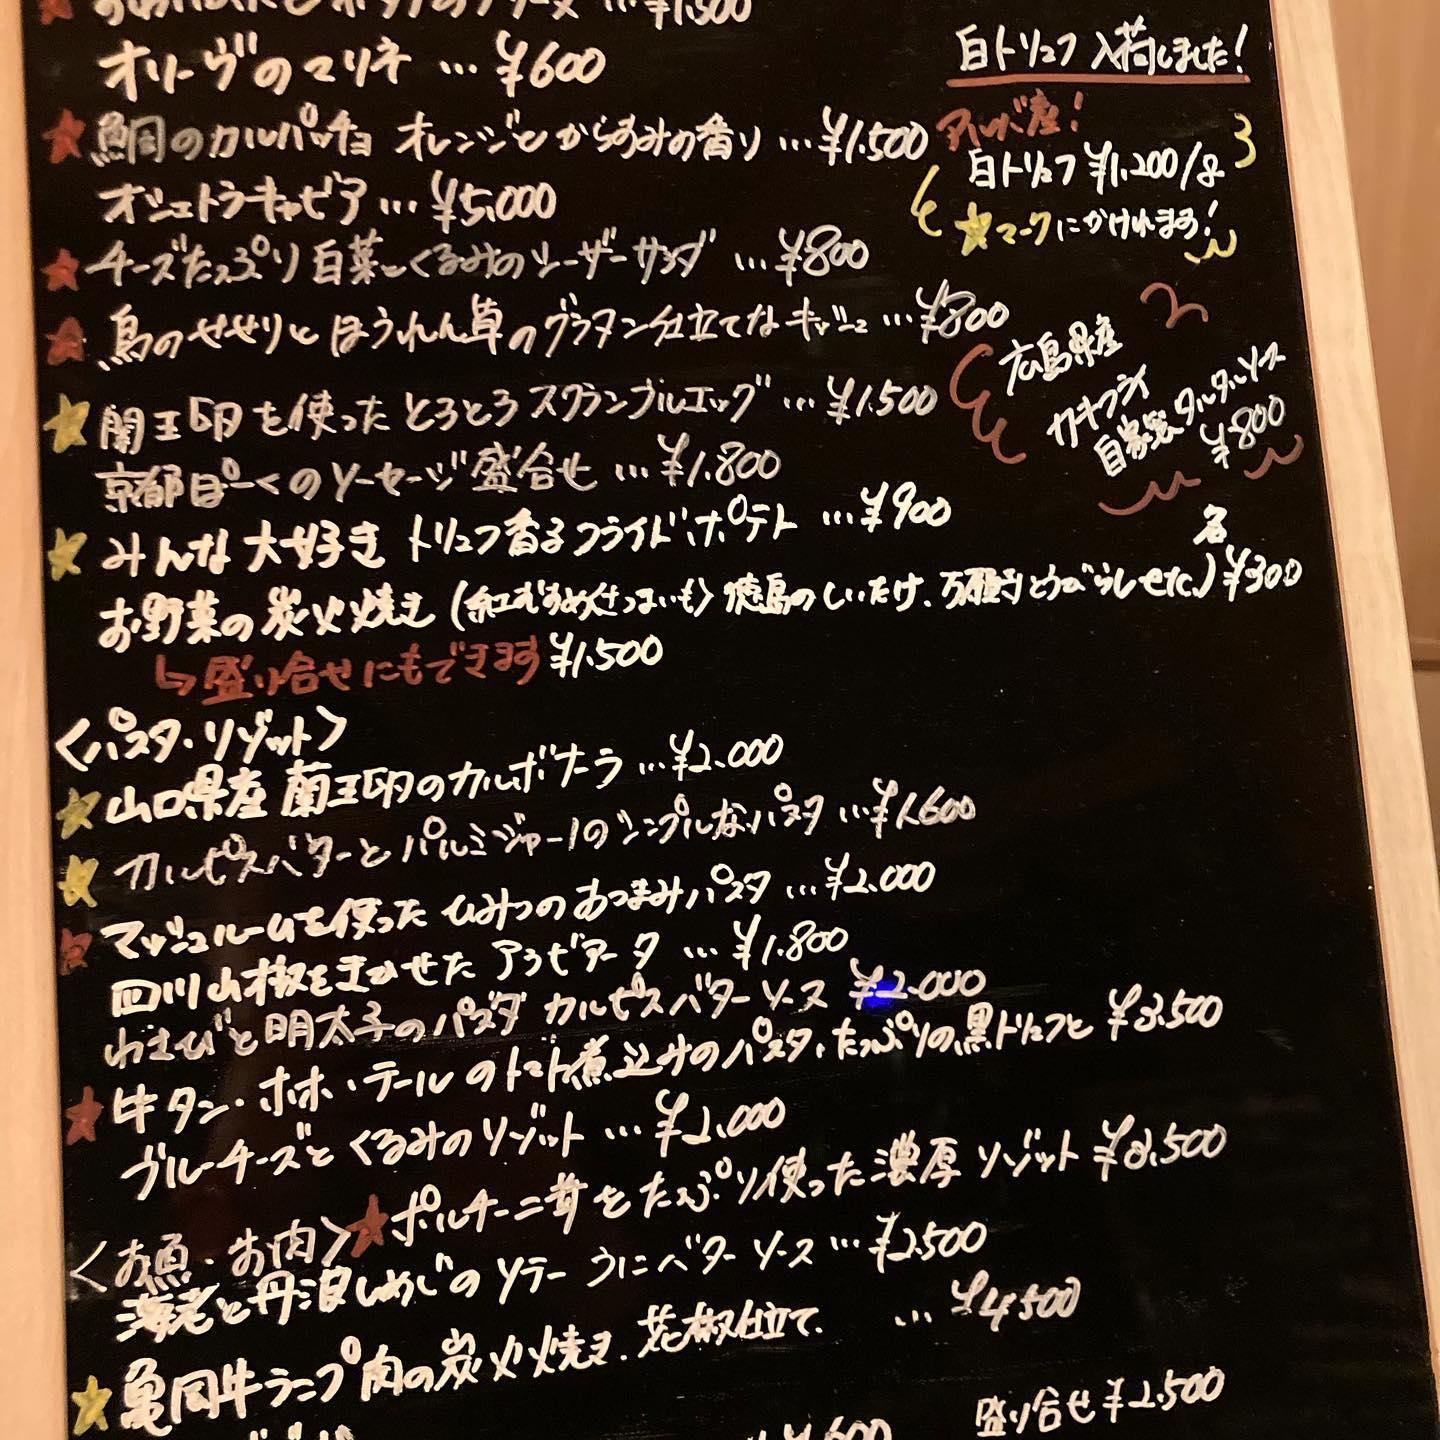 …¥1,300
オリーヴのマリネ …¥600
鯛のカルパッチョ オレンジとからすみの香り …¥1.500
オシェトラキャビア …¥5,000
チーズたっぷり白菜とくるみのシーザーサラダ …¥800
鳥のせせりとほうれん草のグラタン仕立てなキッシュ …¥800
蘭王卵を使ったとろとろスクランブルエッグ …¥1.500
京都ぽーくのソーセージ盛合せ …¥1.800
みんな大好き トリュフ香るフライドポテト …¥900
お野菜の炭火焼き (紅はるか さつまいも) 徳島のしいたけ、万願寺とうがらし 各¥300
↳盛り合せにもできます ¥1.500
<パスタ・リゾット>
山口県産 蘭王卵のカルボナーラ …¥2.000
カルピスバターとパルミジャーノのシンプルなパスタ …¥1,600
マッシュルームを使った ひみつのおつまみパスタ …¥2.000
四川山椒をきかせた アラビアータ …¥1.800
わさびと明太子のパスタ カルピスバターソース ¥2.000
牛タン・ホホ・テールのトマト煮込みのパスタ、たっぷりの黒トリュフと ¥3.500
ブルーチーズとくるみのリゾット …¥2,000
ポルチーニ茸をたっぷり使った濃厚リゾット ¥3.500
<お魚・お肉>
海老と丹波しめじのソテー うにバターソース …¥2.500
亀岡牛ランプ肉の炭火焼き、花椒仕立て、 …¥4500
盛り合せ¥2.500
白トリュフ 入荷しました!
アルバ産!
白トリュフ ¥1.200/g
★マークにかけれます!
広島県産
カキフライ
自家製タルタルソース
¥800